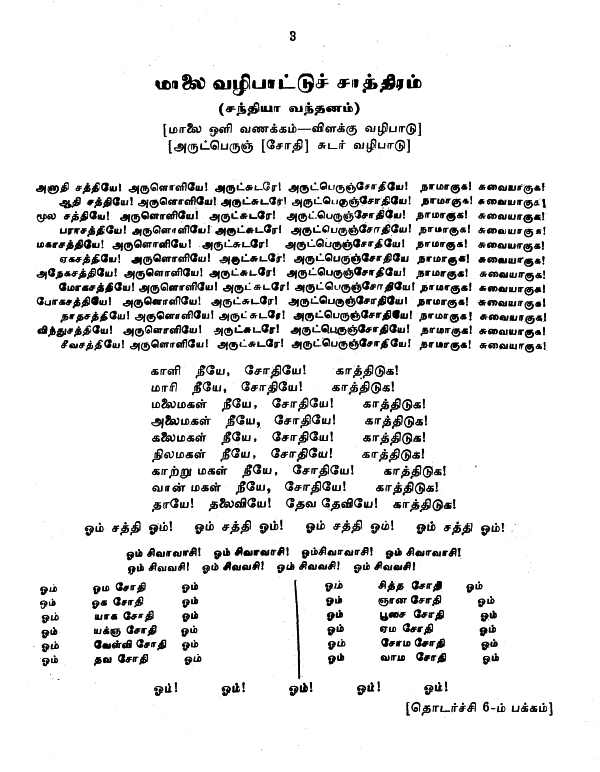 3
மாலை வழிபாட்டுச் சாத்திரம்
(சந்தியா வந்தனம்)
[மாலை ஒளி வணக்கம்—விளக்கு வழிபாடு]
[அருட்பெருஞ் [சோதி] சுடர் வழிபாடு]
அனாதி சத்தியே! அருளொளியே! அருட்சுடரே! அருட்பெருஞ்சோதியே! நாமாகுக! சுவையாகுக!
ஆதி சத்தியே! அருளொளியே! அருட்சுடரே! அருட்பெருஞ்சோதியே! நாமாகுக! சுவையாகுக!
மூல சத்தியே! அருளொளியே! அருட்சுடரே! அருட்பெருஞ்சோதியே! நாமாகுக! சுவையாகுக!
பராசத்தியே! அருளொளியே! அருட்சுடரே! அருட்பெருஞ்சோதியே! நாமாகுக! சுவையாகுக!
மகாசத்தியே! அருளொளியே! அருட்சுடரே! அருட்பெருஞ்சோதியே! நாமாகுக! சுவையாகுக!
ஏகசத்தியே! அருளொளியே! அருட்சுடரே! அருட்பெருஞ்சோதியே நாமாகுக! சுவையாகுக!
அநேகசத்தியே! அருளொளியே! அருட்சுடரே! அருட்பெருஞ்சோதியே! நாமாகுக! சுவையாகுக!
மோகசத்தியே! அருளொளியே! அருட்சுடரே! அருட்பெருஞ்சோதியே! நாமாகுக! சுவையாகுக!
போகசத்தியே! அருளொளியே! அருட்சுடரே! அருட்பெருஞ்சோதியே! நாமாகுக! சுவையாகுக!
நாதசத்தியே! அருளொளியே! அருட்சுடரே! அருட்பெருஞ்சோதியே! நாமாகுக! சுவையாகுக!
விந்துசத்தியே! அருளொளியே! அருட்சுடரே! அருட்பெருஞ்சோதியே! நாமாகுக! சுவையாகுக!
சீவசத்தியே! அருளொளியே! அருட்சுடரே! அருட்பெருஞ்சோதியே! நாமாகுக! சுவையாகுக!
காளி நீயே, சோதியே! காத்திடுக!
மாரி நீயே, சோதியே! காத்திடுக!
மலைமகள் நீயே, சோதியே! காத்திடுக!
அலைமகள் நீயே, சோதியே! காத்திடுக!
கலைமகள் நீயே, சோதியே! காத்திடுக!
நிலமகள் நீயே, சோதியே! காத்திடுக!
காற்று மகள் நீயே, சோதியே! காத்திடுக!
வான் மகள் நீயே, சோதியே! காத்திடுக!
தாயே! தலைவியே! தேவ தேவியே! காத்திடுக!
ஓம் சத்தி ஓம்! ஓம் சத்தி ஓம்! ஓம் சத்தி ஓம்! ஓம் சத்தி ஓம்!
ஓம் சிவாவாசி! ஓம் சிவாவாசி! ஓம்சிவாவாசி! ஓம் சிவாவாசி!
ஓம் சிவவசி! ஓம் சிவவசி! ஓம் சிவவசி! ஓம் சிவவசி!
ஓம் ஓம சோதி ஓம் ஓம் சித்த சோதி ஓம்
ஓம் ஓக சோதி ஓம் ஓம் ஞான சோதி ஓம்
ஓம் யாக சோதி ஓம் ஓம் பூசை சோதி ஓம்
ஓம் யக்ஞ சோதி ஓம் ஓம் ஏம சோதி ஓம்
ஓம் வேள்வி சோதி ஓம் ஓம் சோம சோதி ஓம்
ஓம் தவ சோதி ஓம் ஓம் வாம சோதி ஓம்
ஓம்! ஓம்! ஓம்! ஓம்! ஓம்!
[தொடர்ச்சி 6-ம் பக்கம்]